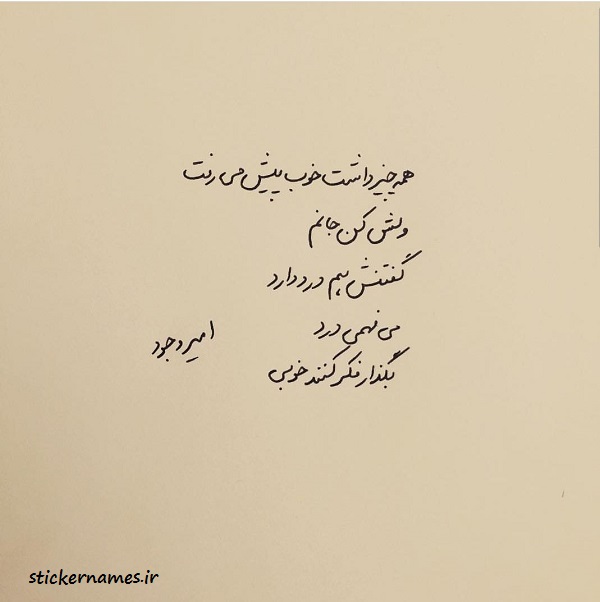 همه چیز داشت خوب پیش می رفت
ولش کن جانم
گفتنش هم درد دارد
می فهمی درد
بگذار فکر کنند خوبی
امیر وجود
stickernames.ir